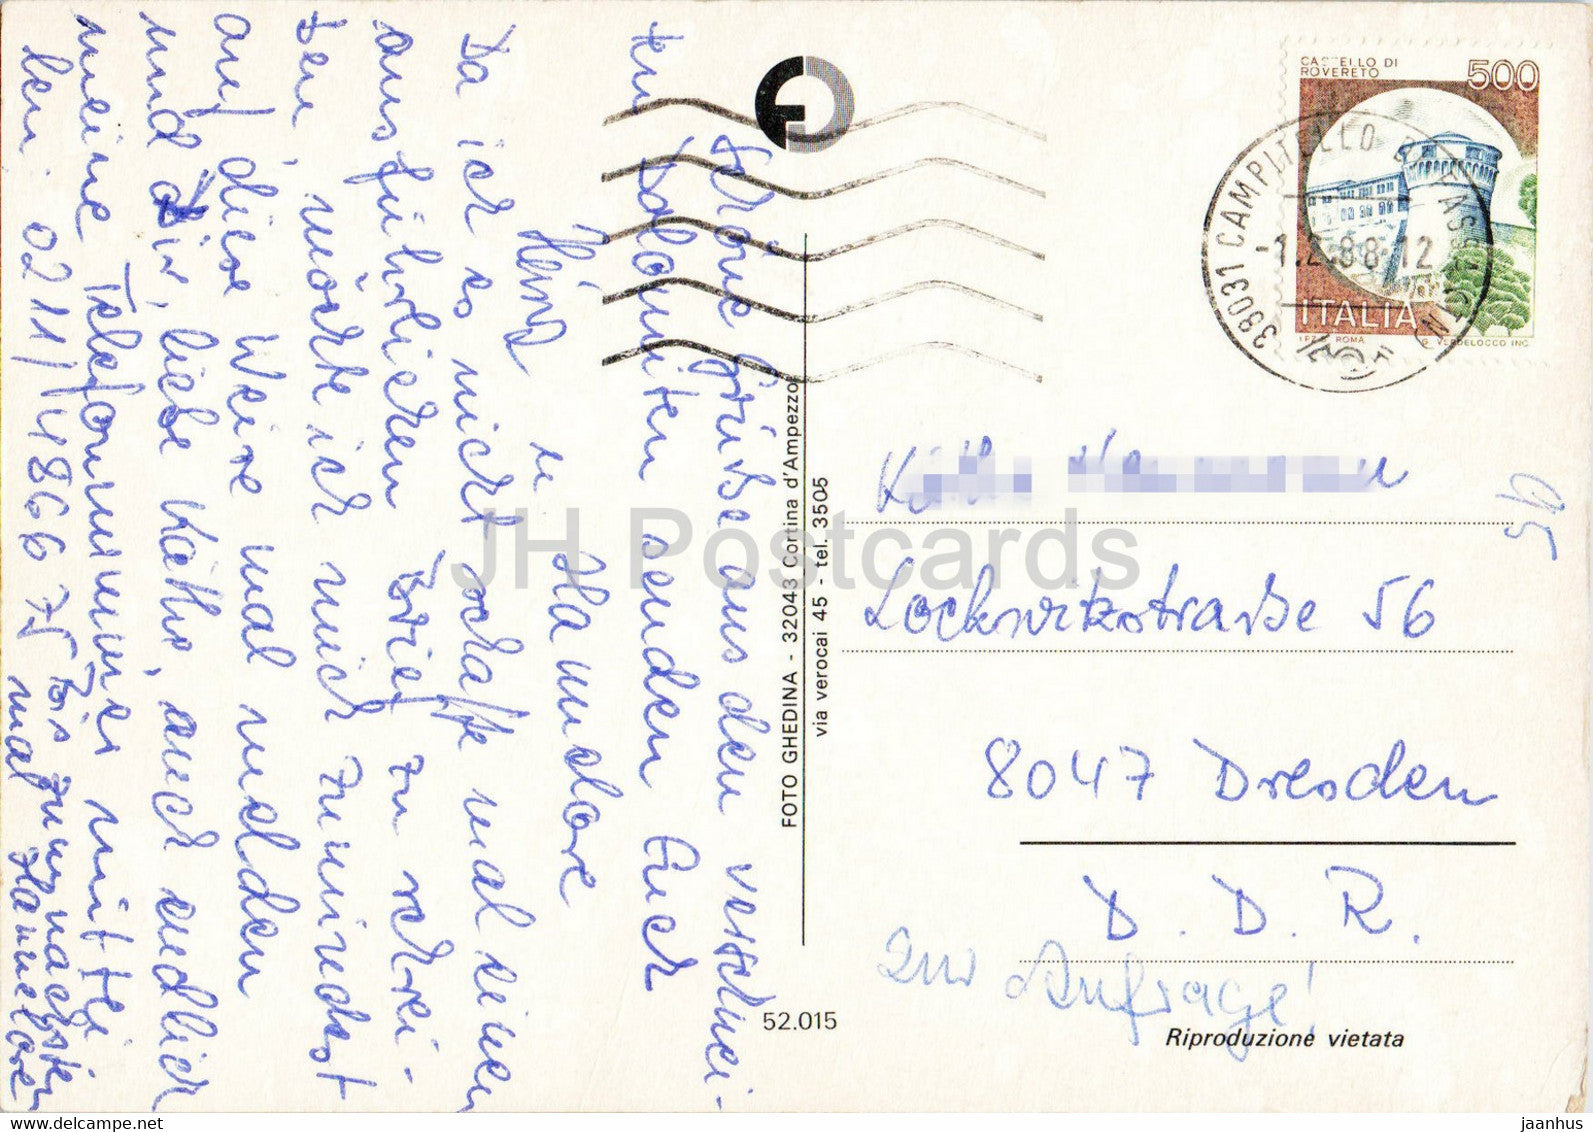 Schöne Grüße aus den verschnei-
ten Dolomiten senden Euch
Heinz u Hannelore
Da ich es nicht schaffe mal einen
ausführlichen Brief zu schrei-
ben, möchte ich mich zumindest
auf diese Weise mal melden
und Dir, liebe Käthe, auch endlich
meine Telefonnummer mittei
len: 0211/486675 Bis zum nächsten
mal Hannelore
FOTO GHEDINA - 32043 Cortina d'Ampezzo
via verocai 45 - tel. 3505
52.015
CASTELLO DI
ROVERETO
500
ITALIA
I.P.Z.S. ROMA
G. VERDELOCCO INC.
38031 CAMPITELLO DI FASSA (TN)
-1.2.88-12
95
Lockwitzstraße 56
8047 Dresden
D. D. R.
zur Anfrage!
Riproduzione vietata
JH Postcards
jaanhus
delcampe.net